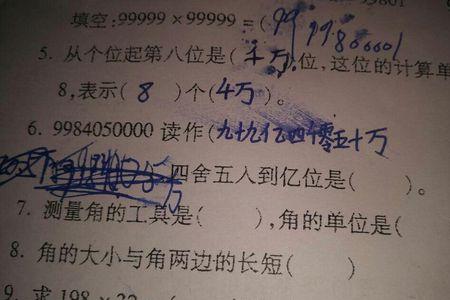 01
填空:99999×99999=(9999800001
5. 从个位起第八位是(千万)位,这位的计算单
8,表示(8)个(千万)。
6. 9984050000 读作(九十九亿 四 零五十万
万 四舍五入到亿位是( )。
7. 测量角的工具是( ),角的单位是(
8. 角的大小与角两边的长短( )
9. 求 198×